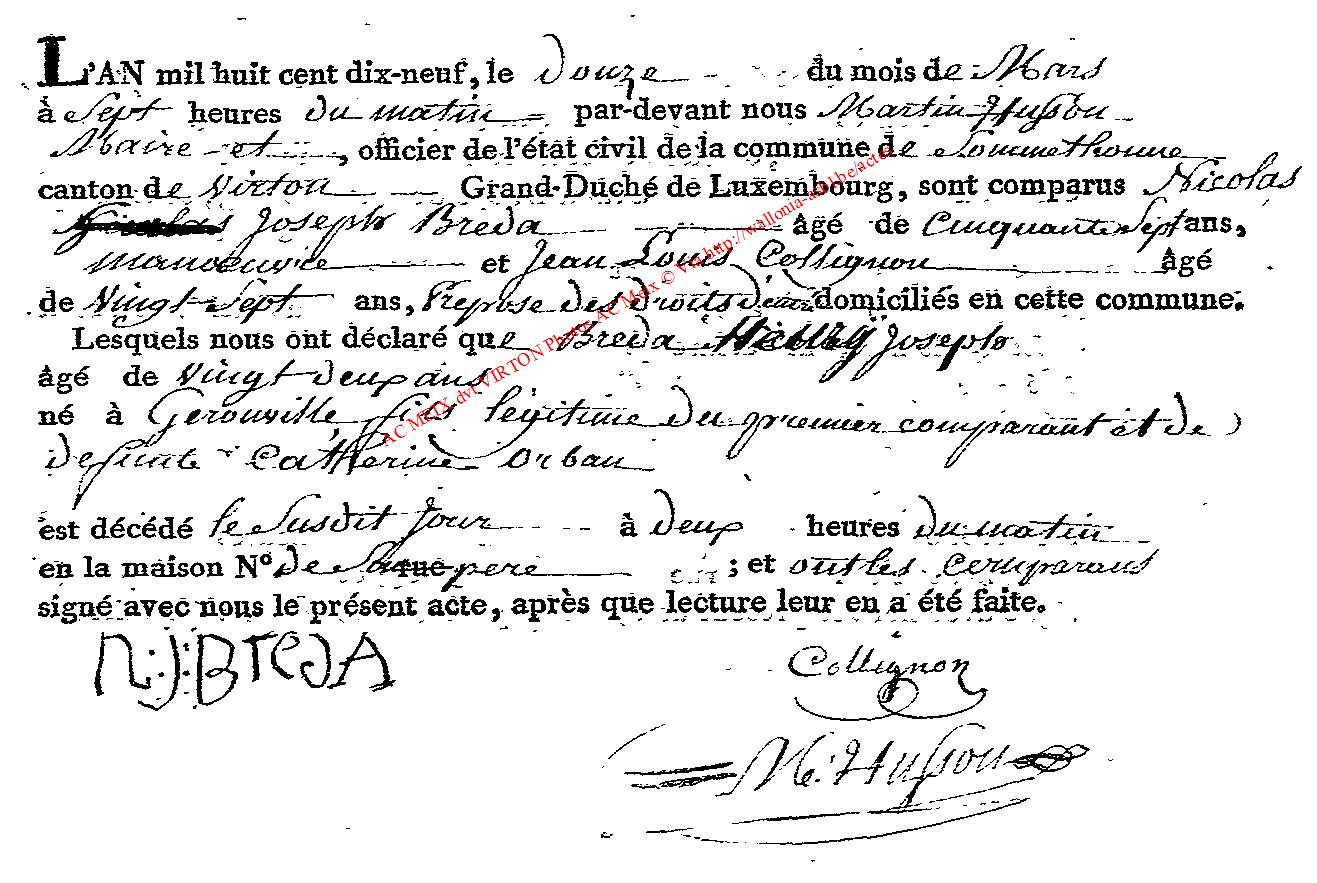 L'AN mil huit cent dix-neuf, le Douze du mois de Mars
à Sept heures du matin par-devant nous Martin Husson
Maire et, officier de l'état civil de la commune de Sommethonne
canton de Virton Grand-Duché de Luxembourg, sont comparus Nicolas
Joseph Breda âgé de Cinquante Sept ans,
manoeuvre et Jean Louis Collignon âgé
de Vingt Sept ans, Preposé des Droits domiciliés en cette commune.
Lesquels nous ont déclaré que Breda Joseph
âgé de Vingt deux ans
né à Gerouville fils légitime du premier comparant et de
defunte Catherine Orban
est décédé le Susdit Jour à deux heures du matin
en la maison N° de Sa rue pere ; et ont les comparans
signé avec nous le présent acte, après que lecture leur en a été faite.
N:J:BreDA
Collignon
M: Husson
AC METX dvt VIRTON Photos AC Metx © Via http://wallonia-asbl.be/actes